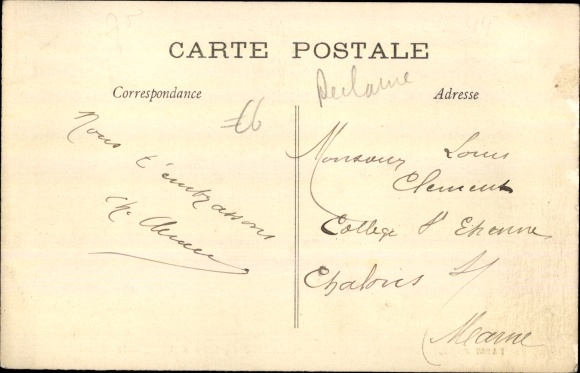 CARTE POSTALE
Correspondance
Adresse
Reclame
£6
Nous t'embrassons
Ch.
Monsieur Louis
Clement
College St Etienne
Chalons s/
Marne